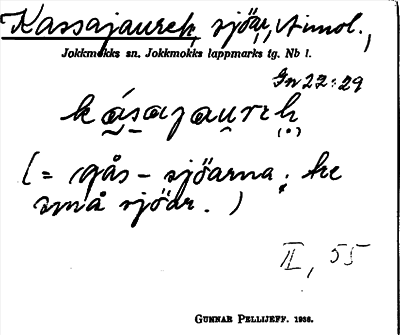 Kassajaureh, sjöar, Arimol.,
Jokkmokks sn. Jokkmokks lappmarks tg. Nb l.
Gn 22:29
kásajaureh
(= gås-sjöarna; tre
små sjöar.)
II, 55
GUNNAR PELLIJEFF. 1938.